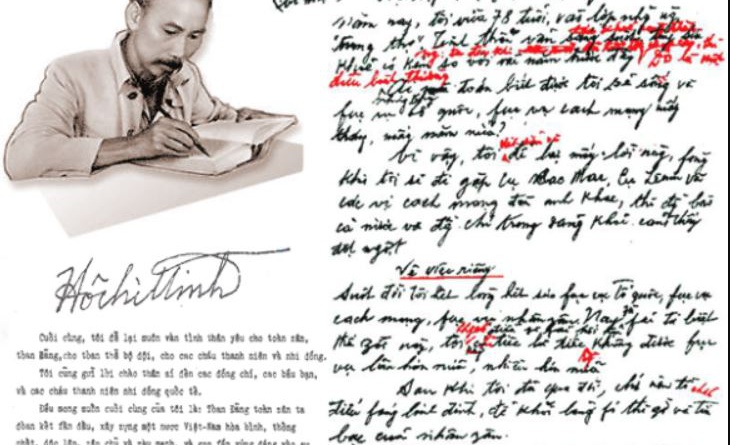 HồchíMinh
Cuối cùng, tôi để lại muôn vàn tình thân yêu cho toàn dân,
toàn Đảng, cho toàn thể bộ đội, cho các cháu thanh niên và nhi đồng.
Tôi cũng gửi lời chào thân ái đến các đồng chí, các bầu bạn,
và các cháu thanh niên nhi đồng quốc tế.
Điều mong muốn cuối cùng của tôi là: Toàn Đảng toàn dân ta
đoàn kết phấn đấu, xây dựng một nước Việt-Nam hòa bình, thống
nhất, độc lập, dân chủ và
năm nay, tôi vừa 78 tuổi, vào lớp những
"trung thọ". Tinh thần vẫn
khoẻ có kém so với vài năm trước đây. Đó là một
điều bình thường
toán biết được tôi sẽ sống và
fục vụ tổ quốc, fục vụ cách mạng mấy
tháng, mấy năm nữa?
Vì vậy, tôi để lại mấy lời này, fòng
khi tôi sẽ đi gặp cụ Các Mác, Cụ Lênin và
các vị cách mạng đàn anh khác, thì đồng bào
cả nước và đồng chí trong Đảng khỏi cảm thấy
đột ngột
Về việc riêng
Suốt đời tôi hết lòng hết sức fục vụ tổ quốc, fục vụ
cách mạng, fục vụ nhân dân. Nay fải từ biệt
thế giới này, tôi tiếc là tiếc không được fục
vụ lâu hơn nữa, nhiều hơn nữa
Sau khi tôi đã qua đời, chớ nên tổ chức
điếu fúng linh đình, để khỏi lãng fí thì giờ và tiền
bạc của nhân dân.